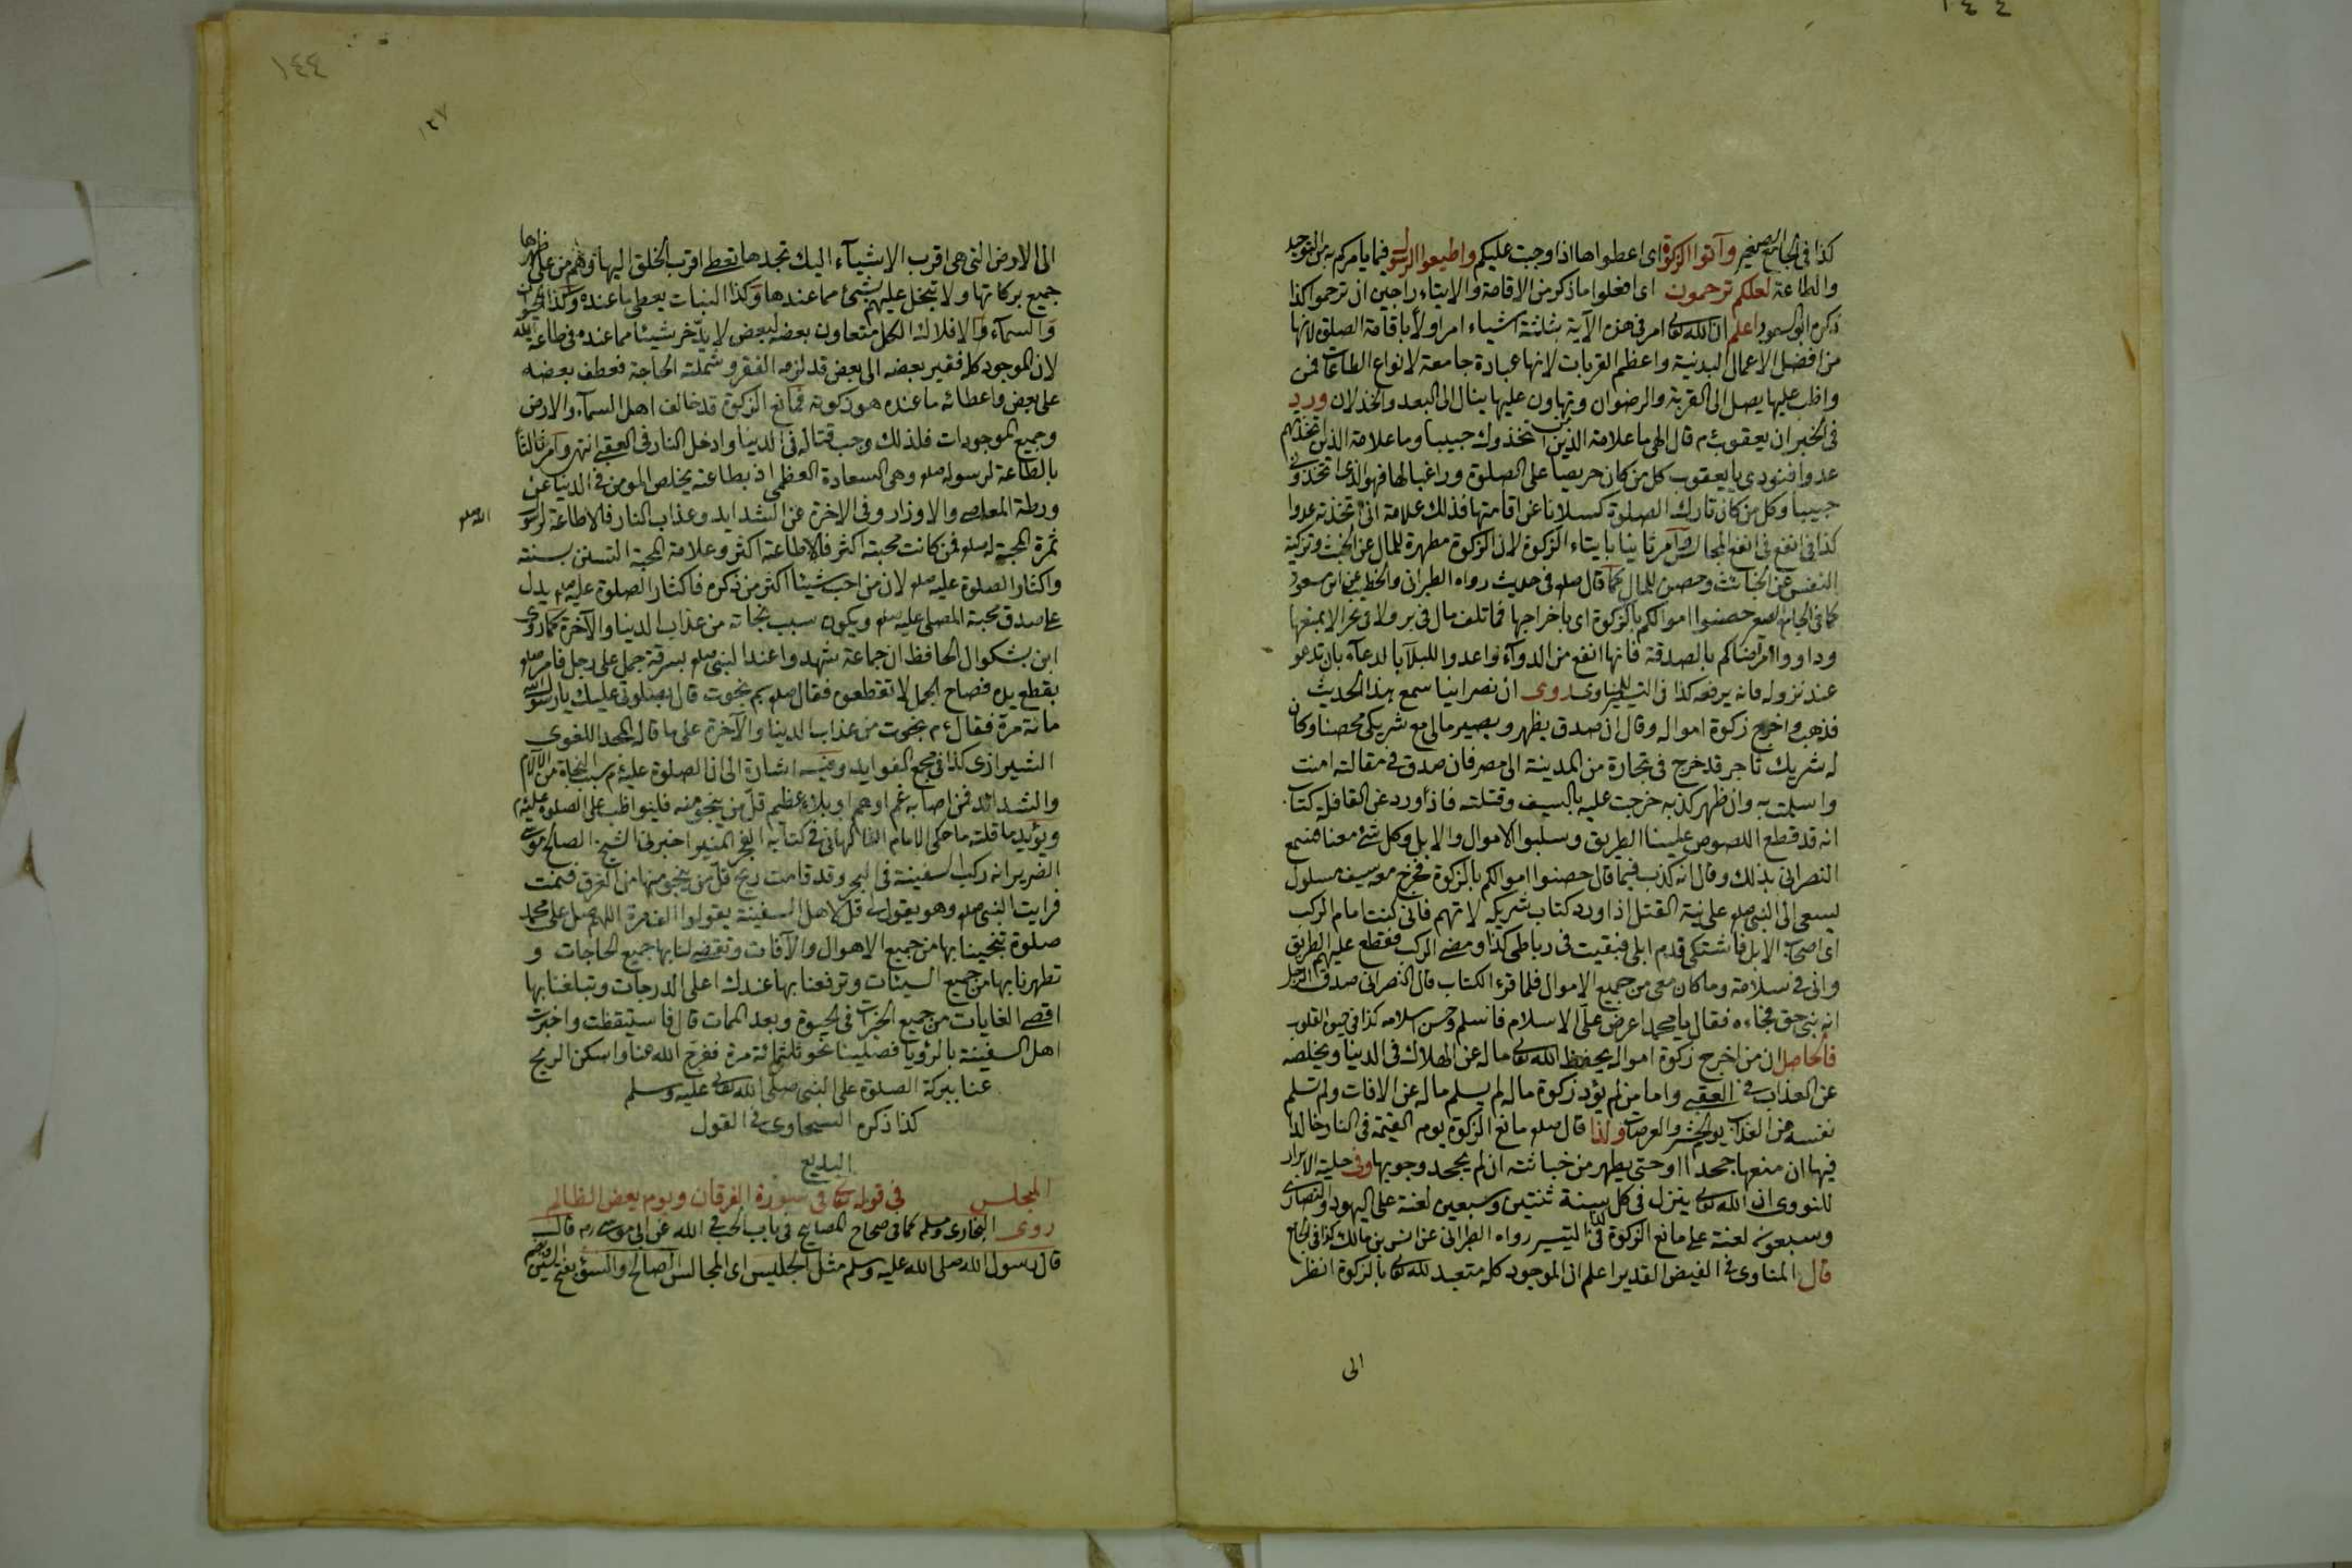 كذا فى الجامع الصغير وآتوا الزكوة اى اعطواها اذا وجبت عليكم واطيعوا الرسول فيما يامركم به من التوحيد
والطاعة لعلكم ترحمون اى افعلوا ما ذكر من الاقامة والايتاء راجين ان ترحموا كذا
ذكره ابو السعود اعلم ان الله تعالى امر فى هذه الآية بثلثة اشياء امر اولا باقامة الصلوة لانها
من افضل الاعمال البدنية واعظم القربات لانها عبادة جامعة لانواع الطاعات فمن
واظب عليها يصل الى القربة والرضوان وتهاون عليها ينال الى البعد والخذلان ورد
فى الخبر ان يعقوب ءم قال الهى ما علامة الذين اتخذوك حبيبا وما علامة الذين اتخذتهم
عدوا فنودى يا يعقوب كل من كان حريصا على الصلوة وراغبا لها فهو الذى اتخذونى
حبيبا وكل من كان تارك الصلوة كسلانا عن اقامتها فذلك علامة انى اتخذته عدوا
كذا فى انفع المجالس وامر ثانيا بايتاء الزكوة لان الزكوة مطهرة للمال عن الخبث وتزكية
النفس عن الخبائث وحصن للمال كما قال صلعم فى حديث رواه الطبرانى والخطيب عن ابن مسعود
كما فى الجامع الصغير حصنوا اموالكم بالزكوة اى باخراجها فما تلف مال فى بر ولا فى بحر الا بمنعها
وداووا امراضاكم بالصدقة فانها انفع من الدوآء واعدوا للبلآء بالدعآء بان تدعو
عند نزوله فانه يرفعه كذا فى التيسير للمناوى روى ان نصرانيا سمع بهذا الحديث
فذهب واخرج زكوة امواله وقال ان صدق يظهر ويصير مالى مع شريكى محصنا وكان
له شريك تاجر قد خرج فى تجارة من المدينة الى مصر فان صدق فى مقالته امنت
واسلمت به وان ظهر كذبه خرجت عليه بالسيف وقتلته فاذا ورد عن القافلة كتاب
انه قد قطع اللصوص علينا الطريق وسلبوا الاموال والابل وكل شئ معنا فسمع
النصرانى بذلك وقال انه كذب فيما قال حصنوا اموالكم بالزكوة فخرج معه سيف مسلول
ليسعى الى النبى صلعم على نية القتل اذا ورد كتاب شريكه لا تهم فانى كنت امام الركب
اى اصحاب الابل فاشتكى قدم ابلى فبقيت فى رباطى كذا ومضى الركب فقطع عليهم الطريق
وانى فى سلامة وما كان معى من جميع الاموال فلما قرء الكتاب قال النصرانى صدق الرجل
انه نبى حق فجاءه فقال يا محمد اعرض علىّ الاسلام فاسلم وحسن اسلامه كذا فى حيوة القلوب
فالحاصل ان من اخرج زكوة امواله يحفظ الله تعالى ماله عن الهلاك فى الدنيا ويخلصه
عن العذاب فى العقبى واما من لم يؤد زكوة ماله لم يسلم ماله عن الافات ولم تسلم
نفسه من العذاب يوم الحشر والعرصات ولذا قال صلعم مانع الزكوة يوم القيمة فى النار خالدا
فيها ان منعها جحدا اوحتى يطهر من خباثته ان لم يجحد وجوبها وفى حلية الابرار
للنووى ان الله تعالى ينزل فى كل سنة ثنتين وسبعين لعنة على اليهود والنصارى
وسبعون لعنة على مانع الزكوة كذا فى التيسير رواه الطبرانى عن انس بن مالك كذا فى الجامع
قال المناوى فى الفيض القدير اعلم ان الموجود كله متعبد لله تعالى بالزكوة انظر
الى
١٤٤
١٣٧
الى الارض التى هى اقرب الاشيآء اليك تجدها تعطى اقرب الخلق اليها وهم من على ظهرها
جميع بركاتها ولا تبخل عليهم بشئ مما عندها وكذا النبات يعطى ما عنده وكذا الحيوان
والسمآء والافلاك الكل متعاون بعضه لبعض لا يدّخر شيئا مما عنده فى طاعة الله
لان الموجود كله فقير بعضه الى بعض قد لزمه الفقر وشملته الحاجة فعطف بعضه
على بعض واعطائه ما عنده هو زكوته فمانع الزكوة قد خالف اهل السمآء والارض
وجميع الموجودات فلذلك وجب قتاله فى الدنيا وادخل النار فى العقبى انتهى وامر ثالثا
بالطاعة لرسوله صلعم وهى السعادة العظمى اذ بطاعته يخلص المؤمن فى الدنيا عن
ورطة المعاصى والاوزار وفى الاخرة عن الشدايد وعذاب النار فالاطاعة لرسول
الله صلعم
ثمرة المحبة له صلعم فمن كانت محبته اكثر فالاطاعة اكثر وعلامة المحبة التسنن بسنته
واكثار الصلوة عليه صلعم لان من احب شيئا اكثر من ذكره فاكثار الصلوة عليه صلعم يدل
على صدق محبة المصلى عليه صلعم ويكون سبب نجاته من عذاب الدنيا والآخرة كما روى
ابن بشكوال الحافظ ان جماعة شهدوا عند النبى صلعم بسرقة جمل على رجل فامر صلعم
بقطع يده فصاح الجمل لا تقطعوه فقال صلعم بم نجوت قال بصلوتى عليك يا رسول الله
مائة مرة فقال ءم نجوت من عذاب الدنيا والآخرة على ما قاله المجد اللغوى
الشيرازى كذا فى مجمع الفوايد وفيه اشارة الى ان الصلوة عليه ءم سبب النجاة من الآلام
والشدائد فمن اصابه غم اوهم او بلاء عظيم قلّ من ينجو منه فليواظب على الصلوة عليه ءم
ويؤيد ما قلته ما حكى الامام الفاكهانى فى كتابه الفجر المنير اخبرنى الشيخ الصالح موسى
الضرير انه ركب السفينة فى البحر وقد قامت ريح قلّ من ينجو منها من الغرق فنمت
فرايت النبى صلعم وهو يقول قل لاهل السفينة يقولوا الف مرة اللهم صل على محمد
صلوة تنجينا بها من جميع الاهوال والآفات وتقضى لنا بها جميع الحاجات و
تطهرنا بها من جميع السيئات وترفعنا بها عندك اعلى الدرجات وتبلغنا بها
اقصى الغايات من جميع الخيرات فى الحيوة وبعد الممات قال فاستيقظت واخبرت
اهل السفينة بالرؤيا فصلينا نحو ثلثمائة مرة ففرج الله عنا واسكن الريح
عنا ببركة الصلوة على النبى صلى الله تعالى عليه وسلم
كذا ذكره السخاوى فى القول
البديع
المجلس فى قوله تعالى فى سورة الفرقان ويوم يعض الظالم
روى البخارى ومسلم كما فى صحاح المصابيح فى باب الحب فى الله عن ابى موسى رم قال
قال رسول الله صلى الله عليه وسلم مثل الجليس اى المجالس الصالح والسوء بفتح السين